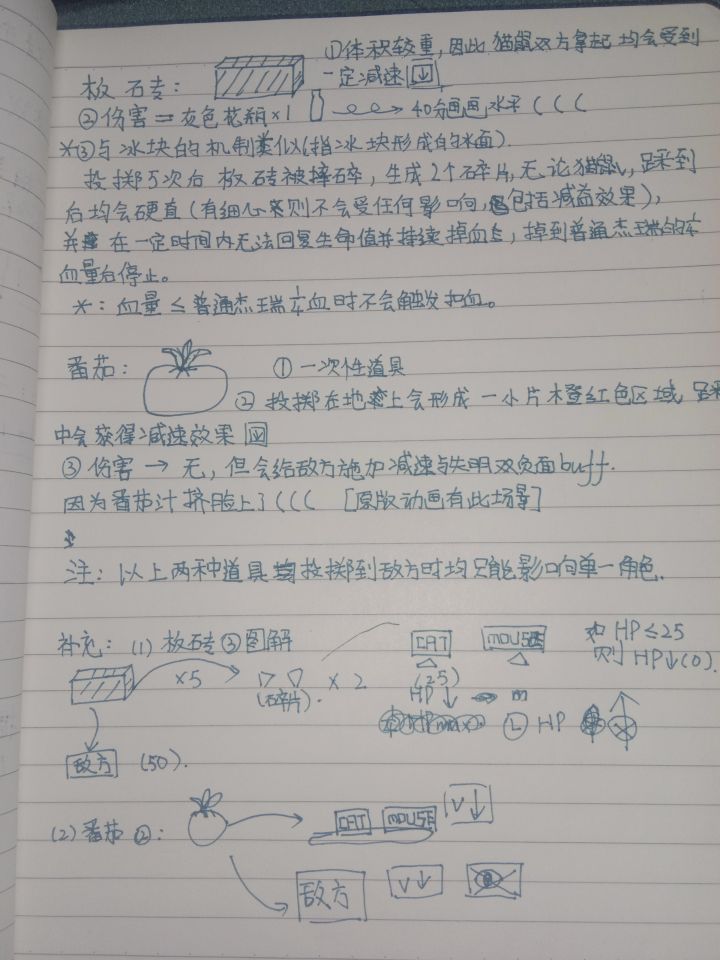 ①体积较重，因此猫鼠双方拿起均会受到
板砖： 一定减速
②伤害=灰色花瓶×1 → 40分画画水平(((
*③与冰块的机制类似(指冰块形成的冰面).
投掷5次后板砖被摔碎，生成2个碎片，无论猫鼠，踩到
后均会硬直(有细心来则不会受任何影响，包括减益效果)，
并在一定时间内无法回复生命值并持续掉血，掉到普通杰瑞的
血量后停止。
*：血量≤普通杰瑞血时不会触发扣血。
番茄： ①一次性道具
②投掷在地上会形成一小片橙红色区域，踩
中会获得减速效果
③伤害→无，但会给敌方施加减速与失明双负面buff.
因为番茄汁挤脸上了((( [原版动画有此场景]
注：以上两种道具投掷到敌方时均只能影响单一角色.
补充：(1)板砖③图解 CAT MOUSE 如HP≤25
×5 (碎片). ×2 (25) 则HP↓(0).
HP↓
HP
敌方 (50).
(2)番茄②： CAT MOUSE V↓
敌方 V↓